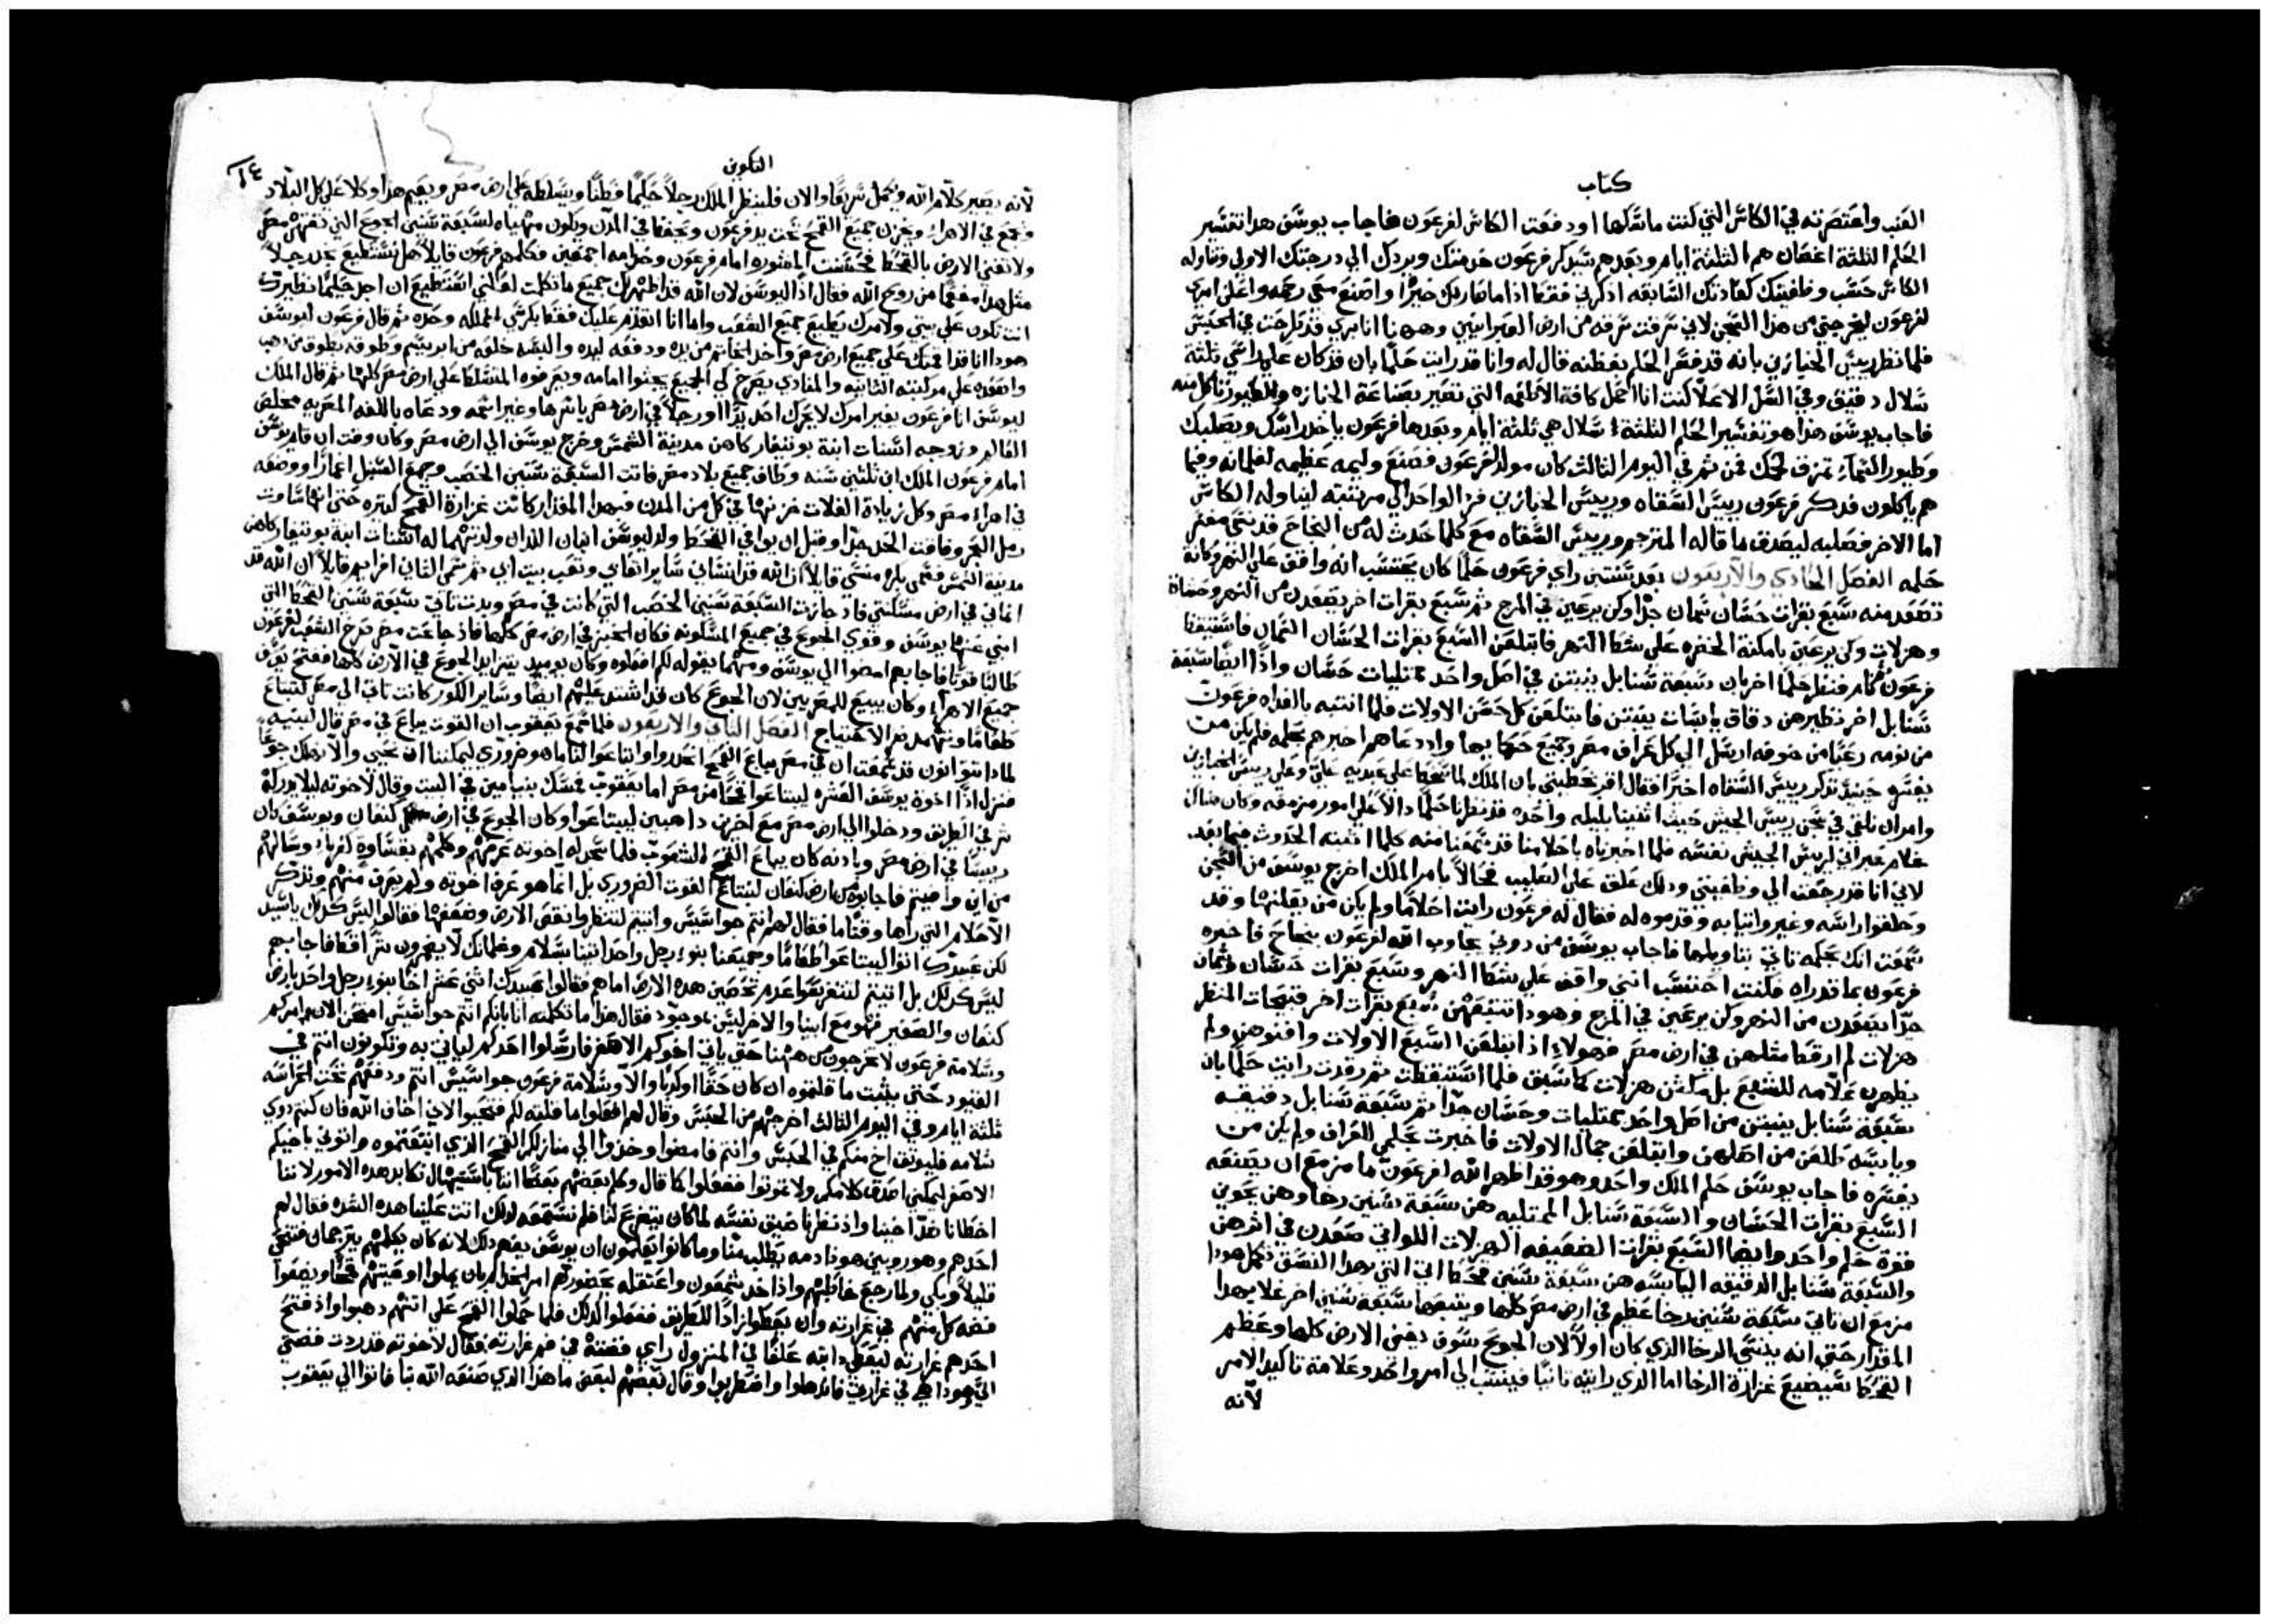 كتاب
العنب واعتصرته في الكاس التي كنت ماسكها اودفعت الكاس لفرعون فاجاب يوسف هدا تفسير
الحلم الثلثة اغصان هم الثلثة ايام وبعدهم سيدكر فرعون خدمتك ويردك الي درجتك الاولي وتناوله
الكاس حسب وظيفتك كعادتك السابقه ادكرني فقط اذا ما صار لك خيرًا واصنع معي رحمه واعلن امري
لفرعون ليخرجني من هذا السجن لاني سرقت سرقه من ارض العبرانيين وههنا انا بري قد طرحت في الحبس
فلما نظر رييس الخبازين بانه قد فسر الحلم بفطنه قال له وانا قد رايت حلمًا بان قد كان علي راسي ثلثة
سلال دقيق وفي السل الاعلا كنت انا احمل كافة الاطعمه التي تصير بصناعة الخبازه والطيور تاكل منه
فاجاب يوسف هذا هو تفسير الحلم الثلثة سلال هي ثلثة ايام وبعدها فرعون ياخد راسك ويصلبك
وطيور السماء تمزق لحمك فمن ثم في اليوم الثالث كان مولد لفرعون فصنع وليمه عظيمه لغلمانه وفيما
هم ياكلون فدكر فرعون رييس السقاه ورييس الخبازين فرد الواحد الي مرتبته ليناوله الكاس
اما الاخر فصلبه ليصدق ما قاله المترجم ورييس السقاه مع كلما حدث له من النجاح قد نسي مفسر
حلمه الفصل الحادي والاربعون بعد سنتين راي فرعون حلمًا كان يحتسب انه واقف علي النهر وكانه
تصعد منه سبع بقرات حسان سمان جدًا وكن يرعين في المرج ثم سبع بقرات اخر يصعدن من النهر
وهزلات وكن يرعين بامكنة الخضره علي شط النهر فابتلعن السبع بقرات الحسان السمان فاستيقظ
فرعون ثم نام فنظر حلمًا اخر بان سبعة سنابل ينبتن في اصل واحد ممتليات حسان واذًا ايضًا سبعة
سنابل اخر نظيرهن دقاق يابسات ينبتن فابتلعن كل حسن الاولات فلما انتبه بالغداه فرعون
من نومه رعبًا من خوفه ارسل الي كل عراف مصر وجميع حكمايها واد دعاهم اخبرهم بحلمه فلم يكن من
يفسره حينيد تدكر رييس السقاه اخيرًا فقال اقر بخطيتي بان الملك لما سخط علي عبديه علي وعلي رييس الخبازين
وامر ان نلقي في سجن رييس الجيش حيث اثنينا بليله واحده قد نظرنا حلمًا دالًا علي امور مزمعه وكان هناك
غلام عبراني لرييس الجيش نفسه فلما اخبرناه باحلامنا قد سمعنا منه كلما اثبته الحدوث فيما بعد
لاني انا قد رجعت الي وظيفتي ودلك علق علي الصليب فحالًا بامر الملك اخرج يوسف من السجن
وحلقوا راسه وغيروا ثيابه وقدموه له فقال له فرعون رايت احلامًا ولم يكن من يفسرها وقد
سمعت انك بحكمه تاتي بتاويلها فاجاب يوسف من دوني يجاوب الله لفرعون بنجاح فاخبره
فرعون بما قد راه فكنت احتسب انني واقف علي شط النهر وسبع بقرات حسان وسمان
جدًا يصعدن من النهر وكن يرعين في المرج وهودا تتبعهن سبع بقرات اخر قبيحات المنظر
هزلات لم ار قط مثلهن في ارض مصر فهولاء اذ ابتلعن السبع الاولات وافنوهن ولم
يظهرن علامه للشبع بل مكثن هزلات كما سبق فلما استيقظت ثم رقدت رايت حلمًا بان
سبعة سنابل ينبتن من اصل واحد ممتليات وحسان جدًا ثم سبعة سنابل دقيقه
ويابسه طلعن من اصلهن وابتلعن جمال الاولات فاخبرت بحلمي العراف ولم يكن من
يفسره فاجاب يوسف حلم الملك واحد وهو قد اظهر الله لفرعون ما مزمع ان يصنعه
السبع بقرات الحسان والسبعة سنابل الممتليه هن سبعة سنين رخا وهن يحوين
قوة حلم واحد وايضا السبع بقرات الضعيفه الهزلات اللواتي صعدن في اثرهن
والسبعة سنابل الدقيقه اليابسه هن سبعة سنين قحط اتي التي بهدا النسق تكمل هودا
مزمع ان تاتي سبعة سنين رخا عظيم في ارض مصر كلها ويتبعها سبعة سنين اخر غلا بهدا
المقدار حتي انه ينسي الرخا الذي كان اولًا لان الجوع سوف يفني الارض كلها وعظم
القحط سيضيع غزارة الرخا اما الذي رايته ثانيًا فينسب الي امر واحد وعلامة تاكيد الامر
لانه
التكوين
٤٢
لانه يصير كلام الله ويكمل سريعًا والان فلينظر الملك رجلًا حكيمًا فطنًا ويسلطه علي ارض مصر ويقيم هدا وكلا علي كل البلاد
ويجمع في الاهراء ويخزن جميع القمح تحت يد فرعون ويحفظ في المدن ويكون مهياه لسبعة سنين الجوع التي تقهر مصر
ولا تفني الارض بالقحط فحسنت المشوره امام فرعون وخدامه اجمعين فكلمهم فرعون قايلًا هل نستطيع نجد رجلًا
مثل هدا مفعمًا من روح الله فقال اذًا ليوسف لان الله قد اظهر لك جميع ما تكلمت افكنني استطيع ان اجد حكيمًا نظيرك
انت تكون علي بيتي ولامرك يطيع جميع الشعب واما انا اتقدم عليك فقط بكرسي المملكه وحده ثم قال فرعون ليوسف
هودا انا قد اقمتك علي جميع ارض مصر واخد الخاتم من يده ودفعه ليده والبسه خلعه من ابريسم وطوقه بطوق من دهب
واصعده علي مركبته الثانيه والمنادي يصرخ كي الجميع يجثوا امامه ويعرفوه المتسلط علي ارض مصر كلها ثم قال الملك
ليوسف انا فرعون بغير امرك لا يحرك احد يدًا او رجلًا في ارض مصر باسرها وغير اسمه ودعاه باللغه المصريه مخلص
العالم وزوجه اسنات ابنة بوتيفار كاهن مدينة الشمس وخرج يوسف الي ارض مصر وكان وقت ان قام يوسف
امام فرعون الملك ابن ثلثين سنه وطاف جميع بلاد مصر فاتت السبعة سنين الخصب وجمع السنبل اغمارًا ووضعه
في اهراء مصر وكل زيادة الغلات خزنها في كل من المدن فبهدا المقدار كانت غزارة القمح كتيره حتي انها ساوت
رمل البحر وفاقت الحد جدًا وقبل ان يوافي القحط ولد ليوسف ابنان اللدان ولدتهما له اسنات ابنة بوتيفار كاهن
مدينة الشمس فسمي بكره منسي قايلًا ان الله قد انساني ساير اتعابي وتعب بيت ابي ثم سمي الثاني افرايم قايلًا ان الله قد
انماني في ارض مسكنتي فاد جازت السبعة سنين الخصب التي كانت في مصر وبدت تاتي سبعة سنين القحط التي
انبي عنها يوسف وقوي الجوع في جميع المسكونه فكان الخبز في ارض مصر كلها فاذ جاعت مصر صرخ الشعب لفرعون
طالبًا قوتًا فاجابهم امضوا الي يوسف ومهما يقوله لكم افعلوه وكان يوميد يتزايد الجوع في الارض كلها ففتح يوسف
جميع الاهراء وكان يبيع للمصريين لان الجوع كان قد اشتد عليهم ايضًا وساير الكور كانت تاتي الي مصر لتبتاع
طعامًا وتهد ضر الاحتياج الفصل الثاني والاربعون فلما سمع يعقوب ان القوت يباع في مصر قال لبنيه
لمادا تتوانون قد سمعت ان في مصر يباع القمح انحدروا وابتاعوا لنا ما هو ضروري ليمكننا ان نحيي والا نهلك جوعًا
فنزل اذًا اخوة يوسف العشره ليبتاعوا قمحًا من مصر اما يعقوب فمسك بنيامين في البيت وقال لاخوته ليلا يدركه
شر في الطريق ودخلوا الي ارض مصر مع اخرين داهبين ليبتاعوا وكان الجوع في ارض كنعان ويوسف كان
رييسًا في ارض مصر وبادنه كان يباع القمح للشعوب فلما سجد له اخوته عرفهم وكلمهم بقساوة كغرباء وسالهم
من اين وافيتم فاجابوه من ارض كنعان لنبتاع القوت الضروري بل انما هو عرف اخوته ولم يعرف منهم وتدكر
الاحلام التي راها وقتًا ما فقال لهم انتم جواسيس واتيتم لتنظروا نقص الارض وضعفها فقالوا ليس كدلك يا سيد
لكن عبيدك اتوا ليبتاعوا طعامًا وجميعنا بنو رجل واحد اتينا بسلام وغلمانك لا يضمرون شرًا قط فاجابهم
ليس كدلك بل اتيتم لتتعرفوا عدم تحصين هده الارض اما هم فقالوا عبيدك اثني عشر اخًا بنو رجل واحد بارض
كنعان والصغير فهو مع ابينا والاخر ليس بموجود فقال هذا ما تكلمته انا بانكم انتم جواسيس امتحن الان امركم
وسلامة فرعون لا تخرجون من ههنا حتي ياتي اخوكم الاصغر فارسلوا احدكم لياتي به وتكونون انتم في
القيود حتي يثبت ما قلتموه ان كان حقًا او كدبًا والا وسلامة فرعون جواسيس انتم ودفعهم تحت الحراسه
ثلثة ايام وفي اليوم الثالث اخرجهم من الحبس وقال لهم افعلوا ما قلته لكم فتحيوا لاني اخاف الله فان كنتم دوي
سلامه فليوثق اخ منكم في الحبس وانتم فامضوا وخدوا الي منازلكم القمح الذي ابتعتموه واتوني باخيكم
الاصغر ليمكنني اصدق كلامكم ولا تموتوا ففعلوا كما قال وكلم بعضهم بعضًا اننا باستيهال نكابد هده الامور لاننا
اخطانا ضد اخينا واذ نظرنا ضيق نفسه لما كان يتضرع لنا فلم نسمعه لدلك اتت علينا هده الشده فقال لهم
احدهم وهو روبين هودا دمه يطلب منا وما كانوا يعلمون ان يوسف يفهم دلك لانه كان يكلمهم بترجمان فتنحي
قليلًا وبكي ولما رجع خاطبهم واذ اخد شمعون واعتقله بحضورهم امر الخدام بان يملوا اوعيتهم قمحًا ويضعوا
فضة كل منهم في غرارته وان يعطوا زادًا للطريق ففعلوا كدلك فلما حملوا القمح علي اتنهم دهبوا واذ فتح
احدهم غرارته ليعطي دابته علفًا في المنزول راي فضته في فم غرارته فقال لاخوته قد ردت فضتي
الي وهودا هي في غرارتي فاندهلوا واضطربوا وقال بعضهم لبعض ما هذا الدي صنعه الله بنا فاتوا الي يعقوب